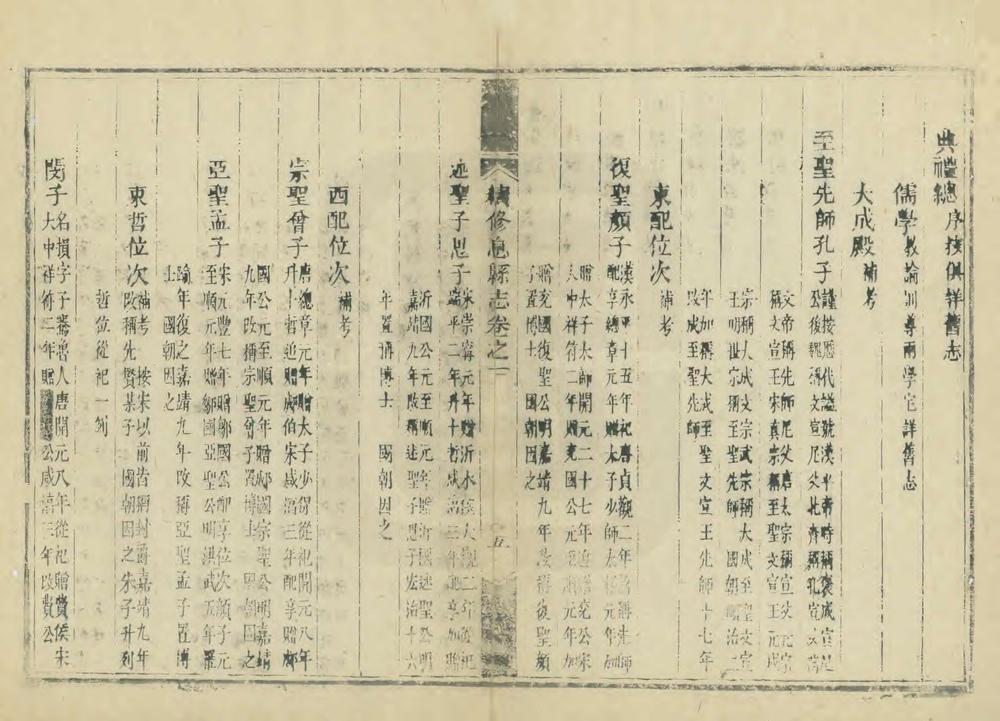 典禮總序按俱詳舊志
儒學教諭訓導兩學官詳舊志
大成殿補考
至聖先師孔子謹按歷代謚號漢平帝時稱褒成宣尼
公後魏稱文宣尼父北齊稱孔宣父
文帝稱先師尼父唐太宗稱宣父元宗
稱文宣王宋真宗稱至聖文宣王元成
宗稱大成至聖文宣
王明世宗稱至聖先師 國朝順治二
年加稱大成至聖文宣王先師十七年
改成至聖先師
東配位次補考
復聖顏子漢永平十五年祀唐貞觀二年
配享總章元年贈太子少師太極元年加
贈太子太師開元二十七年追贈兗公宋
大中祥符二年贈兗國公元年加
贈兗國復聖公明嘉靖九年改稱復聖顏
子置博士 國朝因之
續修息縣志卷之一
五
述聖子思子宋崇寧元年贈沂水侯大觀二年從祀
端平二年升十哲咸淳三年配享加贈
沂國公元至順元年贈沂國述聖公明
嘉靖九年改稱述聖子思子宏治十六
年置博士 國朝因之
西配位次補考
宗聖曾子唐總章元年贈太子少保從祀開元八年
升十哲追贈郕伯宋咸淳三年配享贈郕
國公元至順元年贈郕國宗聖公明嘉靖
九年改稱宗聖曾子置博士 國朝因之
亞聖孟子宋元豐七年贈鄒國公配享位次顏子元
至順元年贈鄒國亞聖公明洪武五年罷
踰年復之嘉靖九年改稱亞聖孟子置博
士 國朝因之
東哲位次補考 按宋以前皆稱封爵嘉靖九年
改稱先賢某子 國朝因之朱子升列
哲位從祀一例
閔子名損字子騫魯人唐開元八年從祀贈費侯宋
大中祥符二年贈公咸淳三年改費公